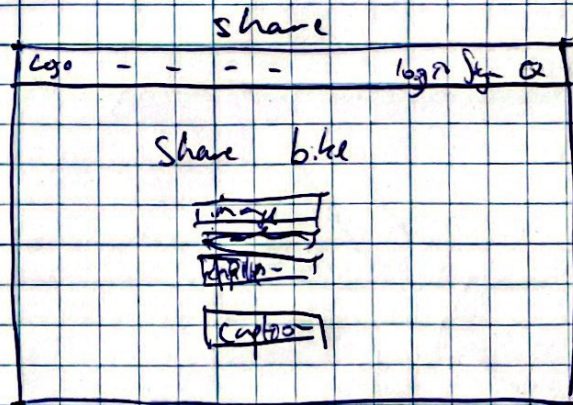 share
Logo - - - - login Sign
Share bike
image
caption